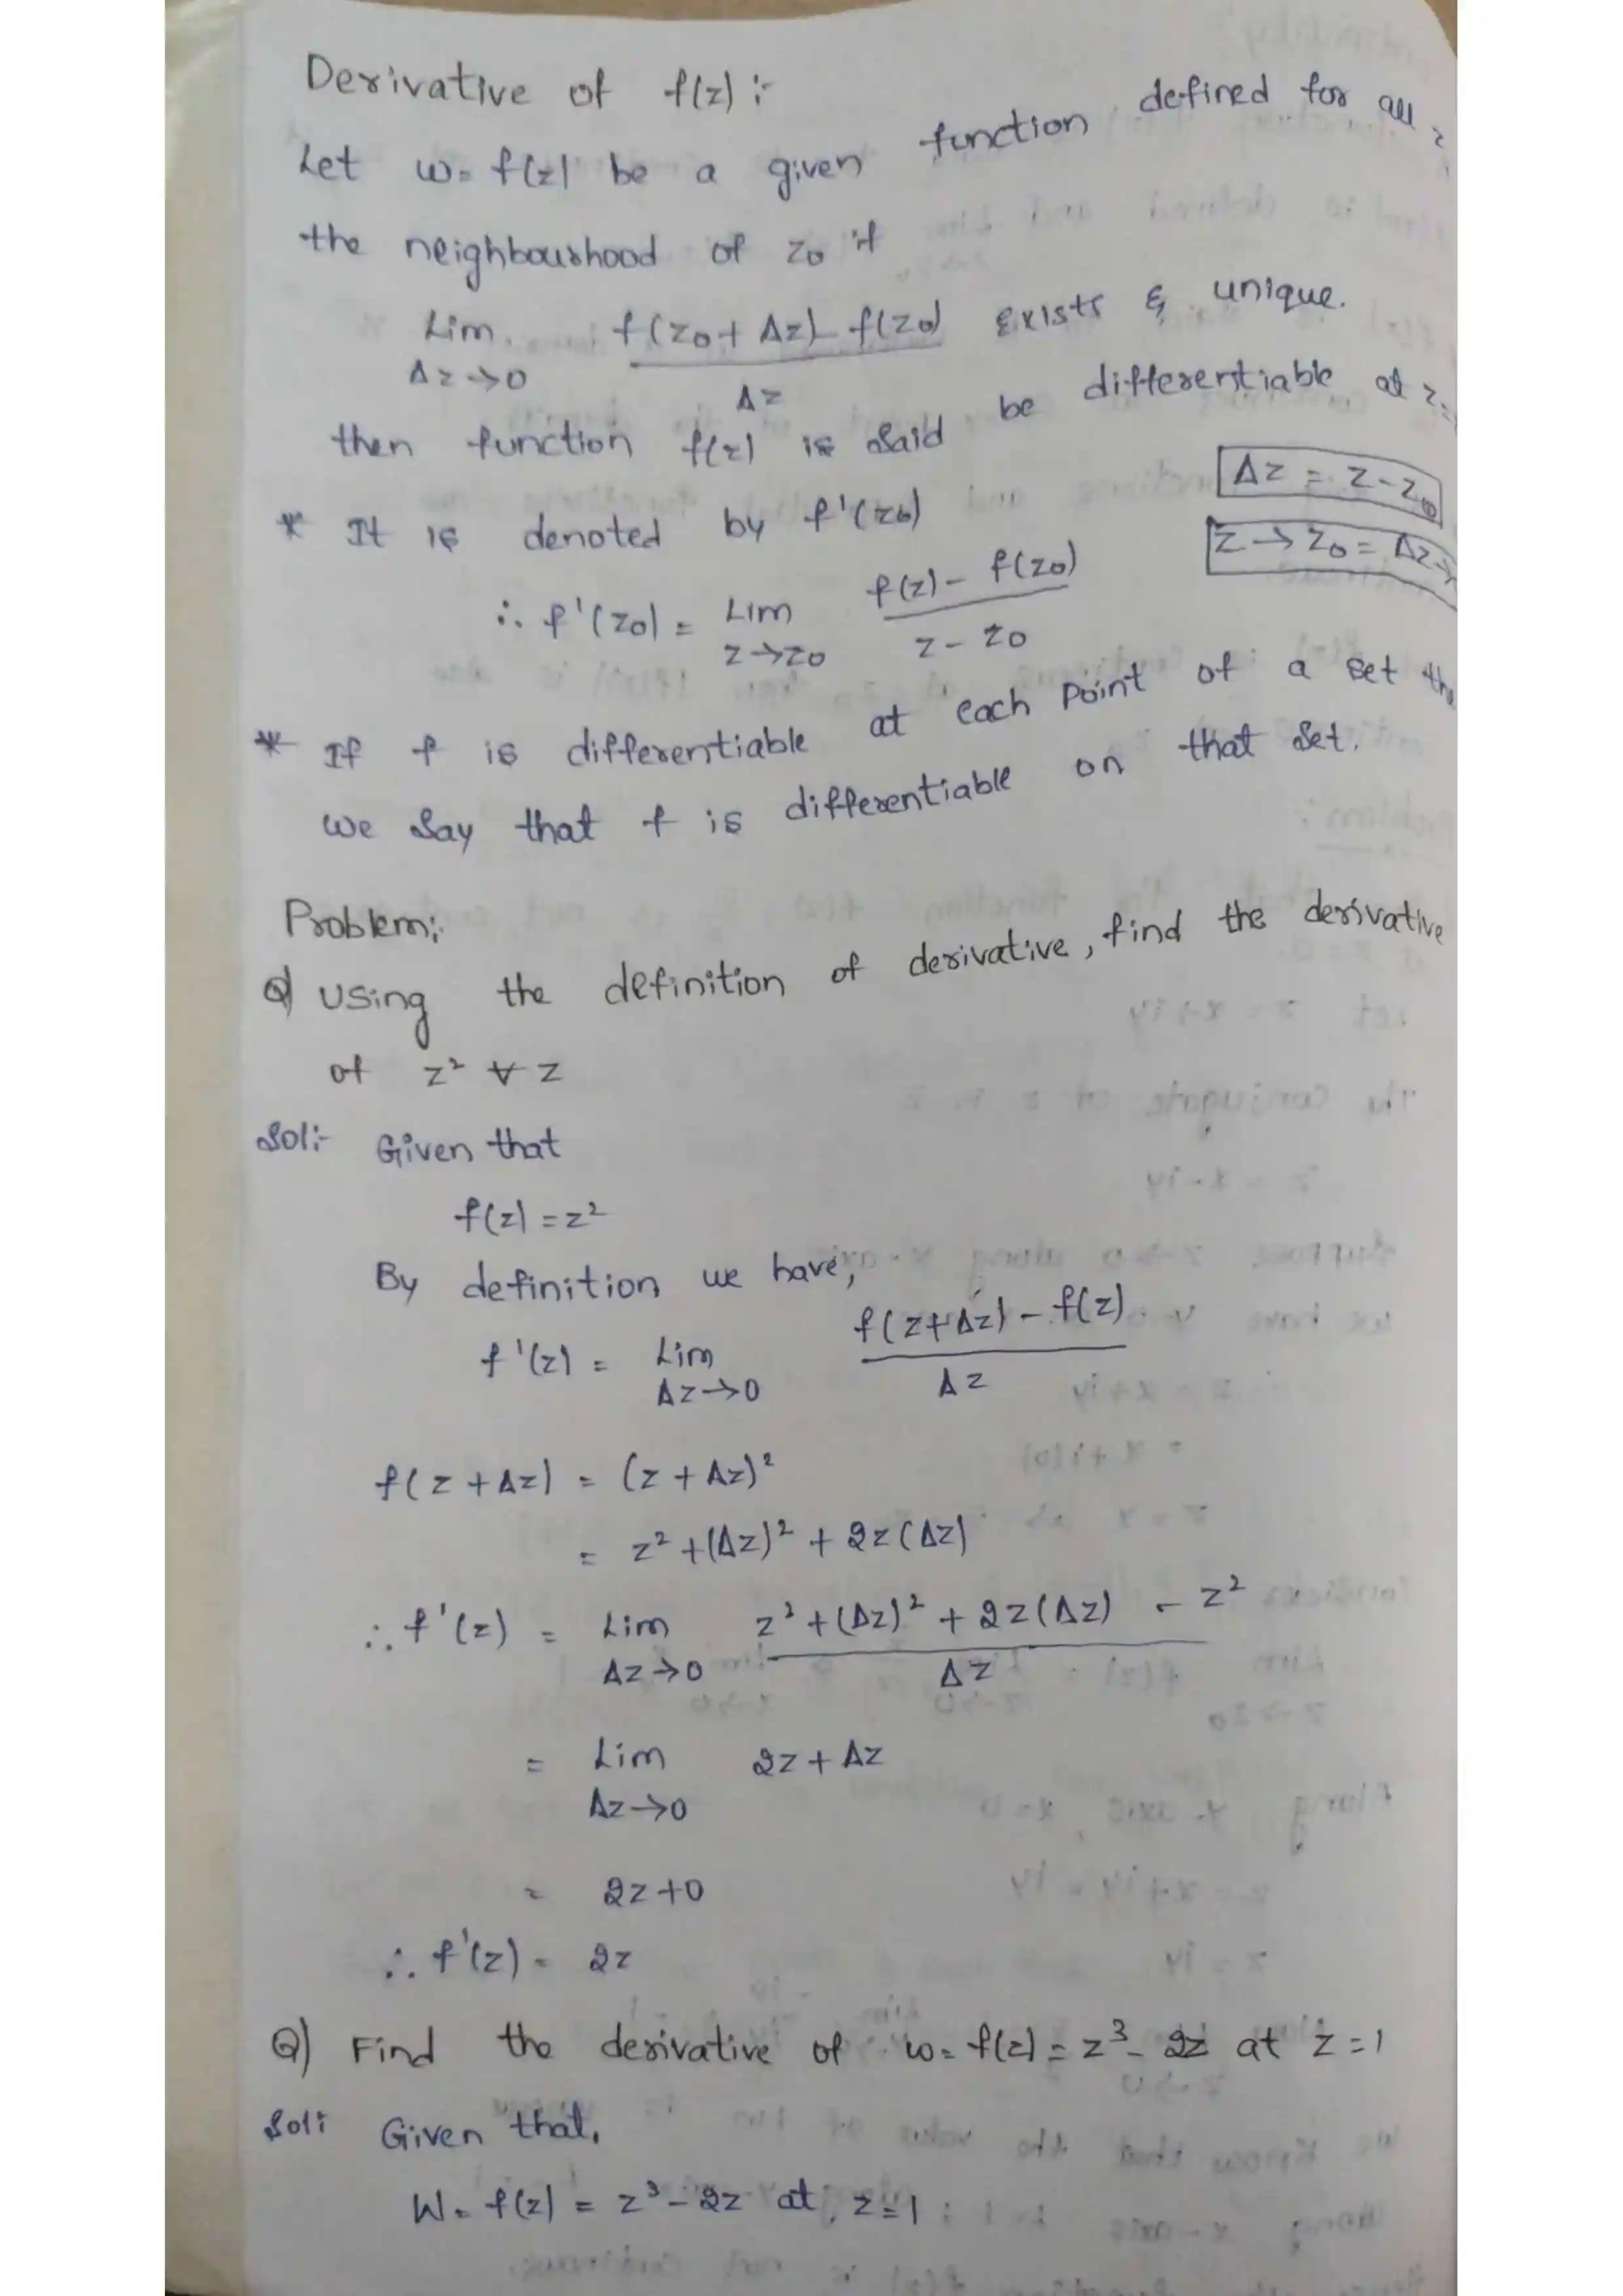 Derivative of f(z) :-
Let w = f(z) be a given function defined for all z
the neighbourhood of z₀ if
Lim Δz→0 f(z₀+Δz) - f(z₀) / Δz exists & unique.
then function f(z) is said be differentiable at z =
* It is denoted by f'(z₀)
Δz = z - z₀
z → z₀ = Δz →
∴ f'(z₀) = Lim z→z₀ f(z) - f(z₀) / z - z₀
* If f is differentiable at each point of a set the
we say that f is differentiable on that set.
Problem:
Q) Using the definition of derivative, find the derivative
of z² ∀ z
Sol:- Given that
f(z) = z²
By definition we have,
f'(z) = Lim Δz→0 f(z+Δz) - f(z) / Δz
f(z+Δz) = (z+Δz)²
= z² + (Δz)² + 2z(Δz)
∴ f'(z) = Lim Δz→0 z² + (Δz)² + 2z(Δz) - z² / Δz
= Lim Δz→0 2z + Δz
= 2z+0
∴ f'(z) = 2z
Q) Find the derivative of w = f(z) = z³ - 2z at z = 1
Sol: Given that,
W = f(z) = z³ - 2z at z = 1